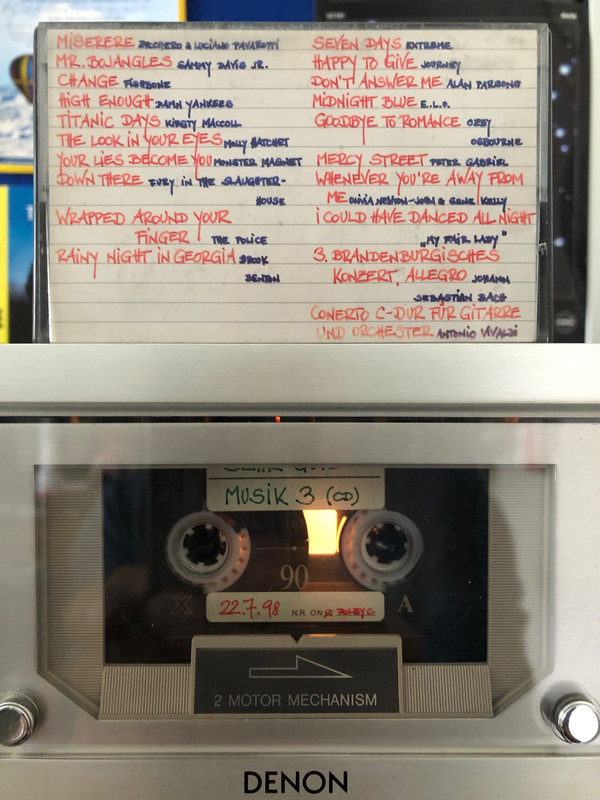 MISERERE ZUCCHERO & LUCIANO PAVAROTTI
MR. BOJANGLES SAMMY DAVIS JR.
CHANGE FISHBONE
HIGH ENOUGH DAMN YANKEES
TITANIC DAYS KIRSTY MACCOLL
THE LOOK IN YOUR EYES MOLLY HATCHET
YOUR LIES BECOME YOU MONSTER MAGNET
DOWN THERE FURY IN THE SLAUGHTER-
HOUSE
WRAPPED AROUND YOUR
FINGER THE POLICE
RAINY NIGHT IN GEORGIA BROOK
BENTON
SEVEN DAYS EXTREME
HAPPY TO GIVE JOURNEY
DON'T ANSWER ME ALAN PARSONS
MIDNIGHT BLUE E.L.O.
GOODBYE TO ROMANCE OZZY
OSBOURNE
MERCY STREET PETER GABRIEL
WHENEVER YOU'RE AWAY FROM
ME OLIVIA NEWTON-JOHN & GENE KELLY
I COULD HAVE DANCED ALL NIGHT
„MY FAIR LADY"
3. BRANDENBURGISCHES
KONZERT, ALLEGRO JOHANN
SEBASTIAN BACH
CONERTO C-DUR FÜR GITARRE
UND ORCHESTER ANTONIO VIVALDI
MUSIK 3 (CD)
90
22.7.98 N.R. ON
A
2 MOTOR MECHANISM
DENON